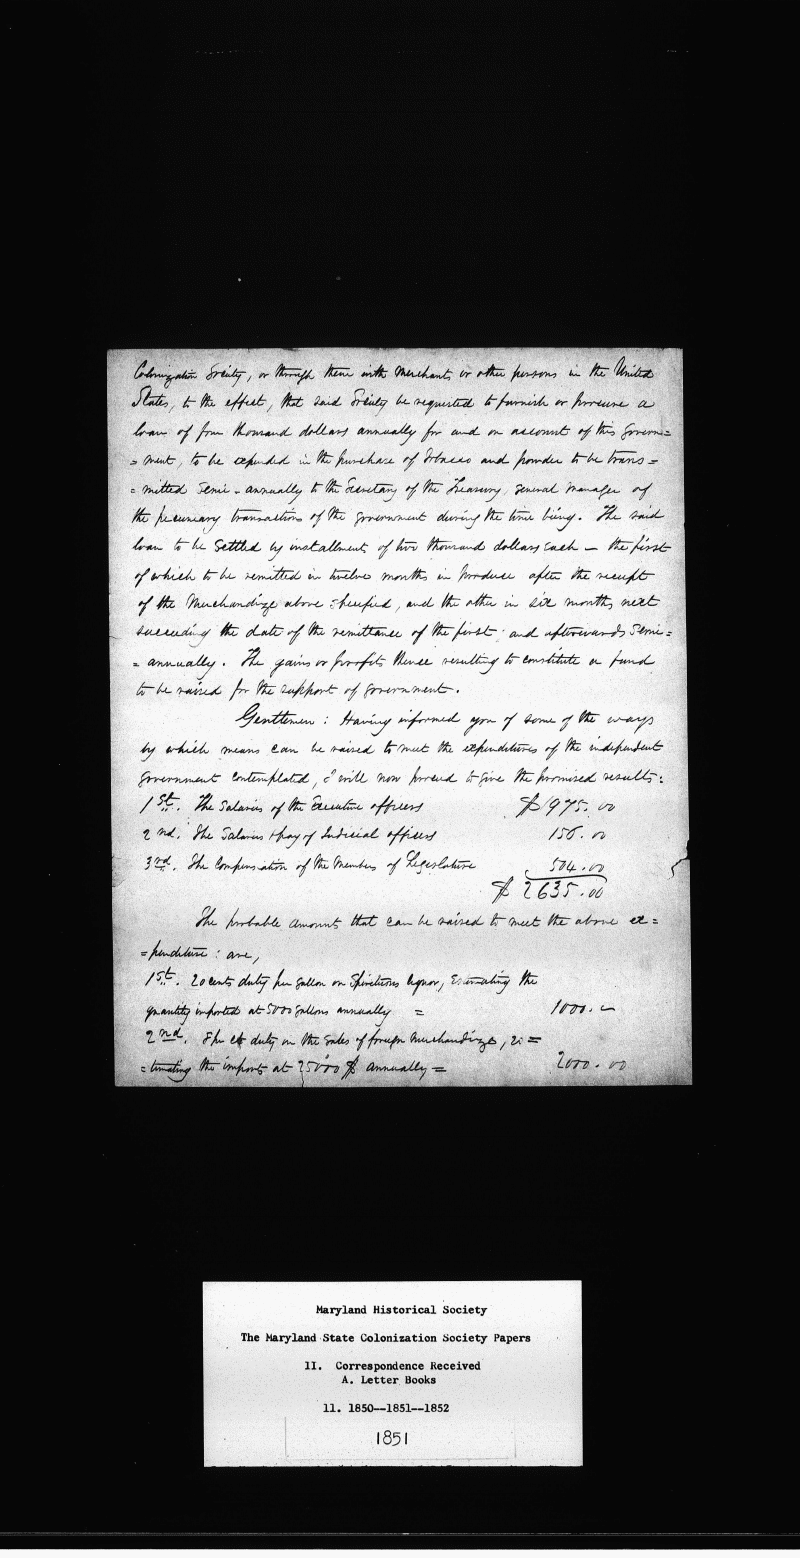 Colonization Society, or through them with Merchants or other persons in the United
States, to the effect, that said Society be requested to furnish or procure a
loan of four thousand dollars annually for and on account of this Govern=
=ment, to be expended in the purchase of Tobacco and powder to be trans=
=mitted Semi-annually to the Secretary of the Treasury, General manager of
the pecuniary transactions of the Government during the time being. The said
loan to be Settled by installments of two thousand dollars each — the first
of which to be remitted in twelve months in produce after the receipt
of the Merchandize above specified, and the other in six months next
succeeding the date of the remittance of the first; and afterwards Semi=
=annually. The gains or profits thence resulting to constitute a fund
to be raised for the support of Government.
Gentlemen: Having informed you of some of the ways
by which means can be raised to meet the expenditures of the independent
Government contemplated, I will now proceed to give the promised results:
1st. The Salaries of the Executive officers $1975.00
2nd. The Salaries & pay of Judicial officers 156.00
3rd. The Compensation of the Members of Legislature 504.00
$2635.00
The probable amounts that can be raised to meet the above ex=
=penditure: are,
1st. 20 cents duty per gallon on Spirituous liquor, Estimating the
quantity imported at 5000 gallons annually = 1000.—
2nd. The duty on the sales of foreign Merchandize, Es=
=timating the imports at 25000 $ annually = 2000.00
Maryland Historical Society
The Maryland State Colonization Society Papers
II. Correspondence Received
A. Letter Books
11. 1850--1851--1852
1851